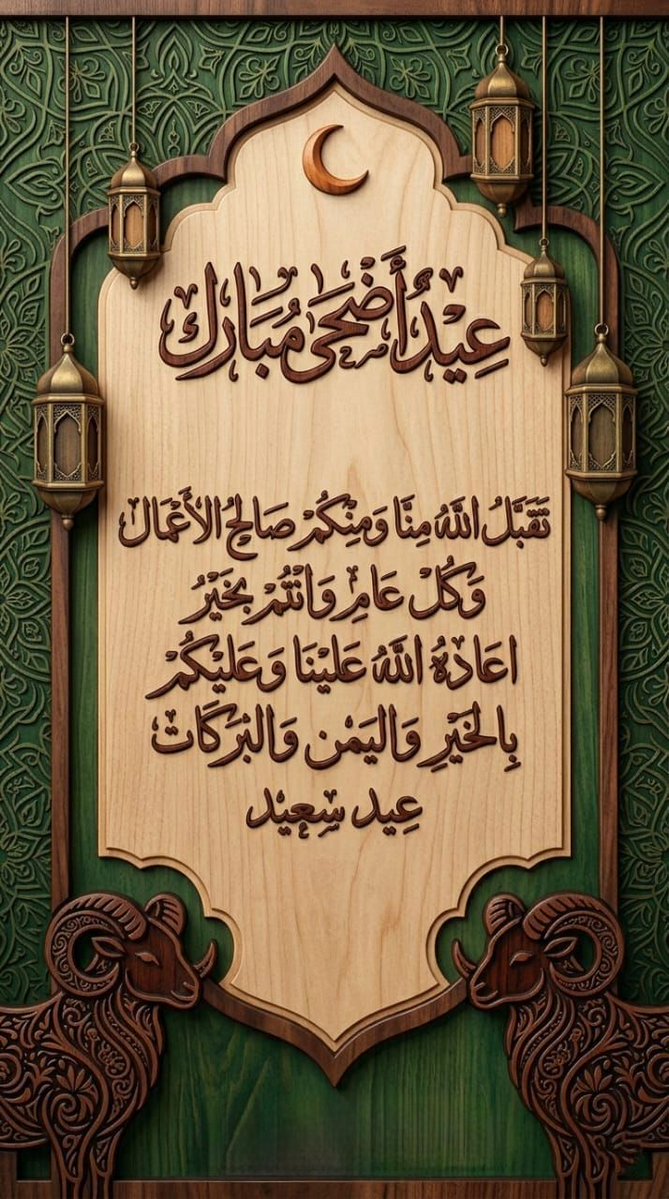 عِيْدُ أَضْحَى مُبَارَك
تَقَبَّلُ اللَّهُ مِنَّا وَمِنْكُمْ صَالِحُ الأَعْمَال
وَكُلْ عَامِ وَانْتُمْ بِخَيْرُ
اعَادَهُ اللَّهُ عَلَيْنَا وَعَلَيْكُمْ
بِالخَيْرِ وَاليَمْن وَالبْرَكَات
عِيد سِعِيْد